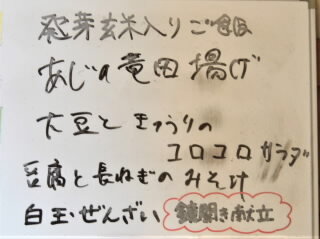 発芽玄米入りご飯
あじの竜田揚げ
大豆ときゅうりの
コロコロサラダ
豆腐と長ねぎのみそ汁
白玉ぜんざい 鏡開き献立